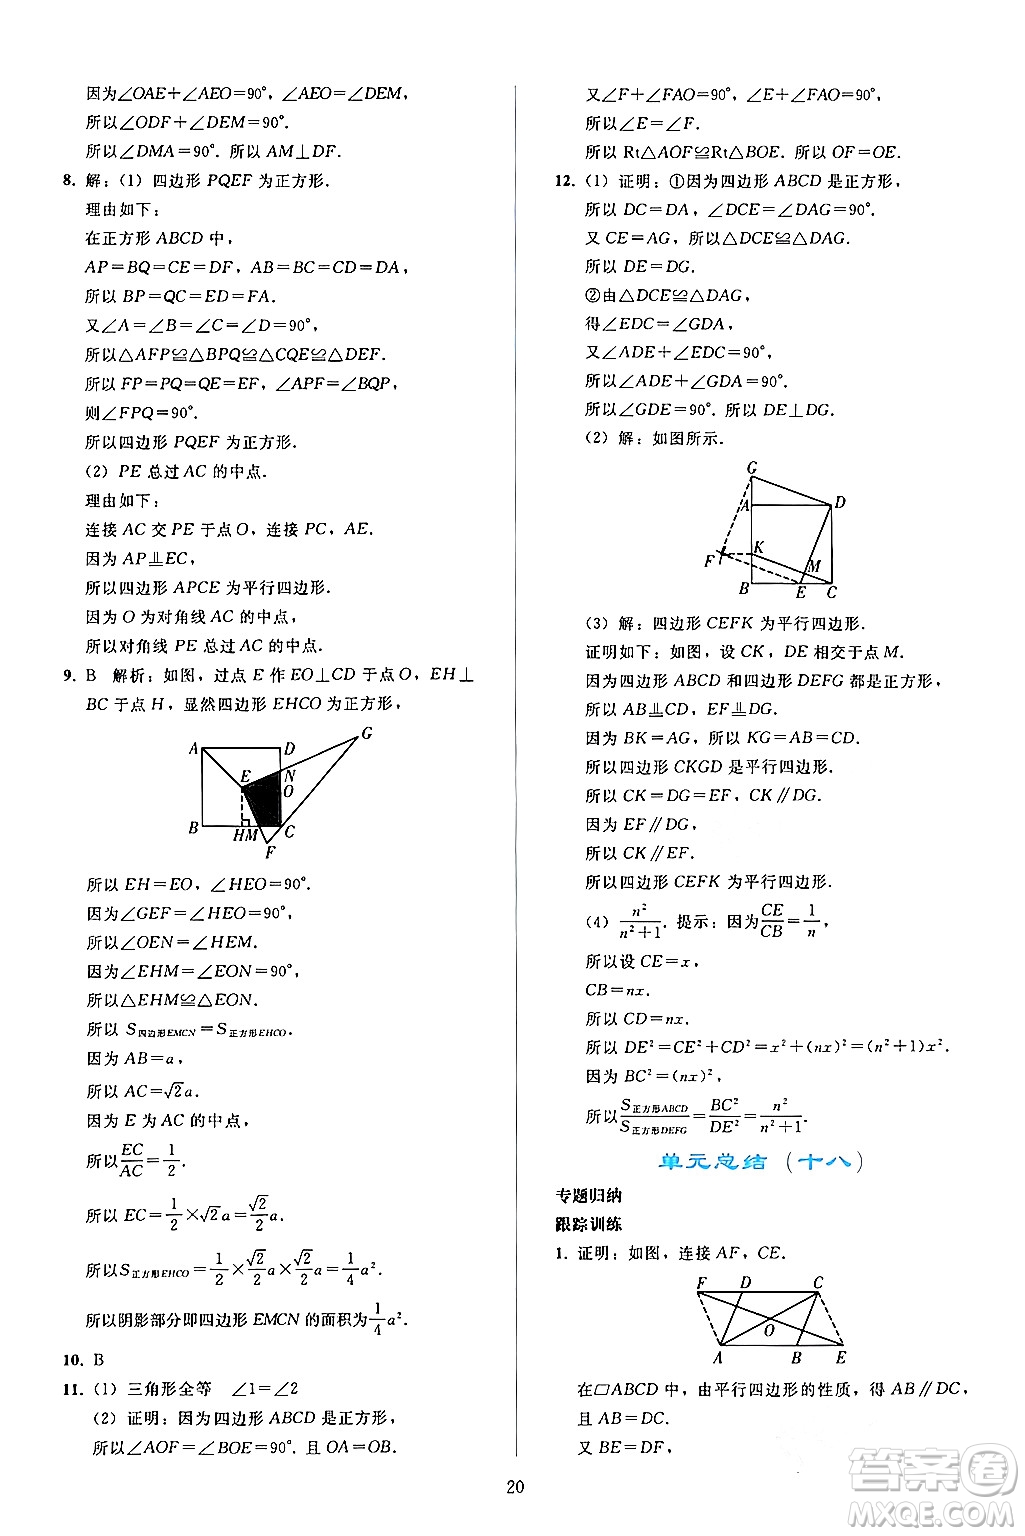 因为∠OAE+∠AEO=90°，∠AEO=∠DEM，
所以∠ODF+∠DEM=90°.
所以∠DMA=90°. 所以 AM⊥DF.
8. 解：(1) 四边形 PQEF 为正方形.
理由如下：
在正方形 ABCD 中，
AP=BQ=CE=DF，AB=BC=CD=DA，
所以 BP=QC=ED=FA.
又∠A=∠B=∠C=∠D=90°，
所以△AFP≌△BPQ≌△CQE≌△DEF.
所以 FP=PQ=QE=EF，∠APF=∠BQP，
则∠FPQ=90°.
所以四边形 PQEF 为正方形.
(2) PE 总过 AC 的中点.
理由如下：
连接 AC 交 PE 于点 O，连接 PC，AE.
因为 AP⫫EC，
所以四边形 APCE 为平行四边形.
因为 O 为对角线 AC 的中点，
所以对角线 PE 总过 AC 的中点.
9. B 解析：如图，过点 E 作 EO⊥CD 于点 O，EH⊥
BC 于点 H，显然四边形 EHCO 为正方形，
G
A D
E N
O
B HM C
F
所以 EH=EO，∠HEO=90°.
因为∠GEF=∠HEO=90°，
所以∠OEN=∠HEM.
因为∠EHM=∠EON=90°，
所以△EHM≌△EON.
所以 S四边形EMCN=S正方形EHCO.
因为 AB=a，
所以 AC=√2a.
因为 E 为 AC 的中点，
所以 EC/AC=1/2.
所以 EC=1/2×√2a=√2/2a.
所以 S正方形EHCO=1/2×√2/2a×√2/2a=1/4a².
所以阴影部分即四边形 EMCN 的面积为1/4a².
10. B
11. (1) 三角形全等 ∠1=∠2
(2) 证明：因为四边形 ABCD 是正方形，
所以∠AOF=∠BOE=90°. 且 OA=OB.
又∠F+∠FAO=90°，∠E+∠FAO=90°，
所以∠E=∠F.
所以 Rt△AOF≌Rt△BOE. 所以 OF=OE.
12. (1) 证明：①因为四边形 ABCD 是正方形，
所以 DC=DA，∠DCE=∠DAG=90°.
又 CE=AG，所以△DCE≌△DAG.
所以 DE=DG.
②由△DCE≌△DAG，
得∠EDC=∠GDA，
又∠ADE+∠EDC=90°，
所以∠ADE+∠GDA=90°.
所以∠GDE=90°. 所以 DE⊥DG.
(2) 解：如图所示.
G
A D
F K M
B E C
(3) 解：四边形 CEFK 为平行四边形.
证明如下：如图，设 CK，DE 相交于点 M.
因为四边形 ABCD 和四边形 DEFG 都是正方形，
所以 AB⫫CD，EF⫫DG.
因为 BK=AG，所以 KG=AB=CD.
所以四边形 CKGD 是平行四边形.
所以 CK=DG=EF，CK∥DG.
因为 EF∥DG，
所以 CK∥EF.
所以四边形 CEFK 为平行四边形.
(4) n²/(n²+1). 提示：因为CE/CB=1/n，
所以设 CE=x，
CB=nx.
所以 CD=nx.
所以 DE²=CE²+CD²=x²+(nx)²=(n²+1)x².
因为 BC²=(nx)²，
所以 S正方形ABCD/S正方形DEFG=BC²/DE²=n²/(n²+1).
单元总结（十八）
专题归纳
跟踪训练
1. 证明：如图，连接 AF，CE.
F D C
O
A B E
在▱ABCD 中，由平行四边形的性质，得 AB∥DC，
且 AB=DC.
又 BE=DF，
20
答案圈
MXQE.COM